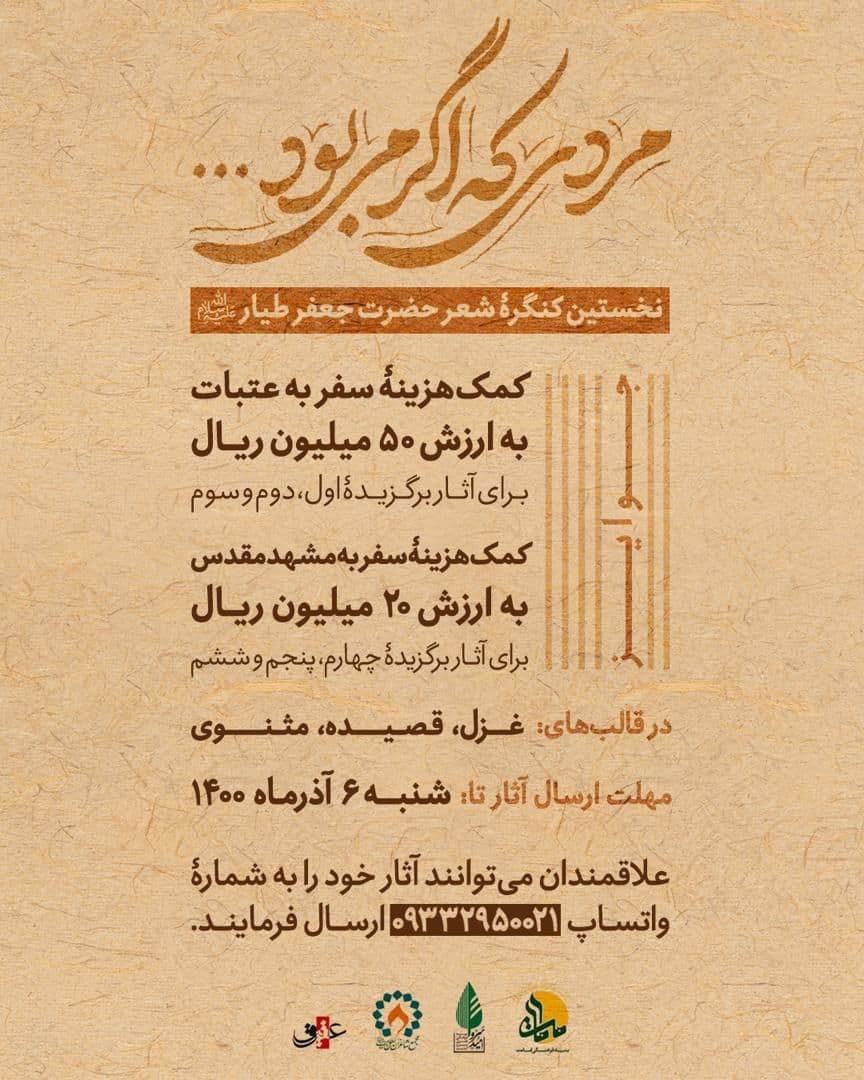 مردی که اگر می‌بود...
نخستین کنگرهٔ شعر حضرت جعفر طیار سلام الله علیه
جوایز
کمک‌هزینهٔ سفر به عتبات
به ارزش ۵۰ میلیون ریال
برای آثار برگزیدهٔ اول، دوم و سوم
کمک‌هزینهٔ سفر به مشهد مقدس
به ارزش ۲۰ میلیون ریال
برای آثار برگزیدهٔ چهارم، پنجم و ششم
در قالب‌های: غزل، قصیده، مثنوی
مهلت ارسال آثار تا: شنبه ۶ آذرماه ۱۴۰۰
علاقمندان می‌توانند آثار خود را به شمارهٔ
واتساپ ۰۹۳۳۲۹۵۰۰۲۱ ارسال فرمایند.